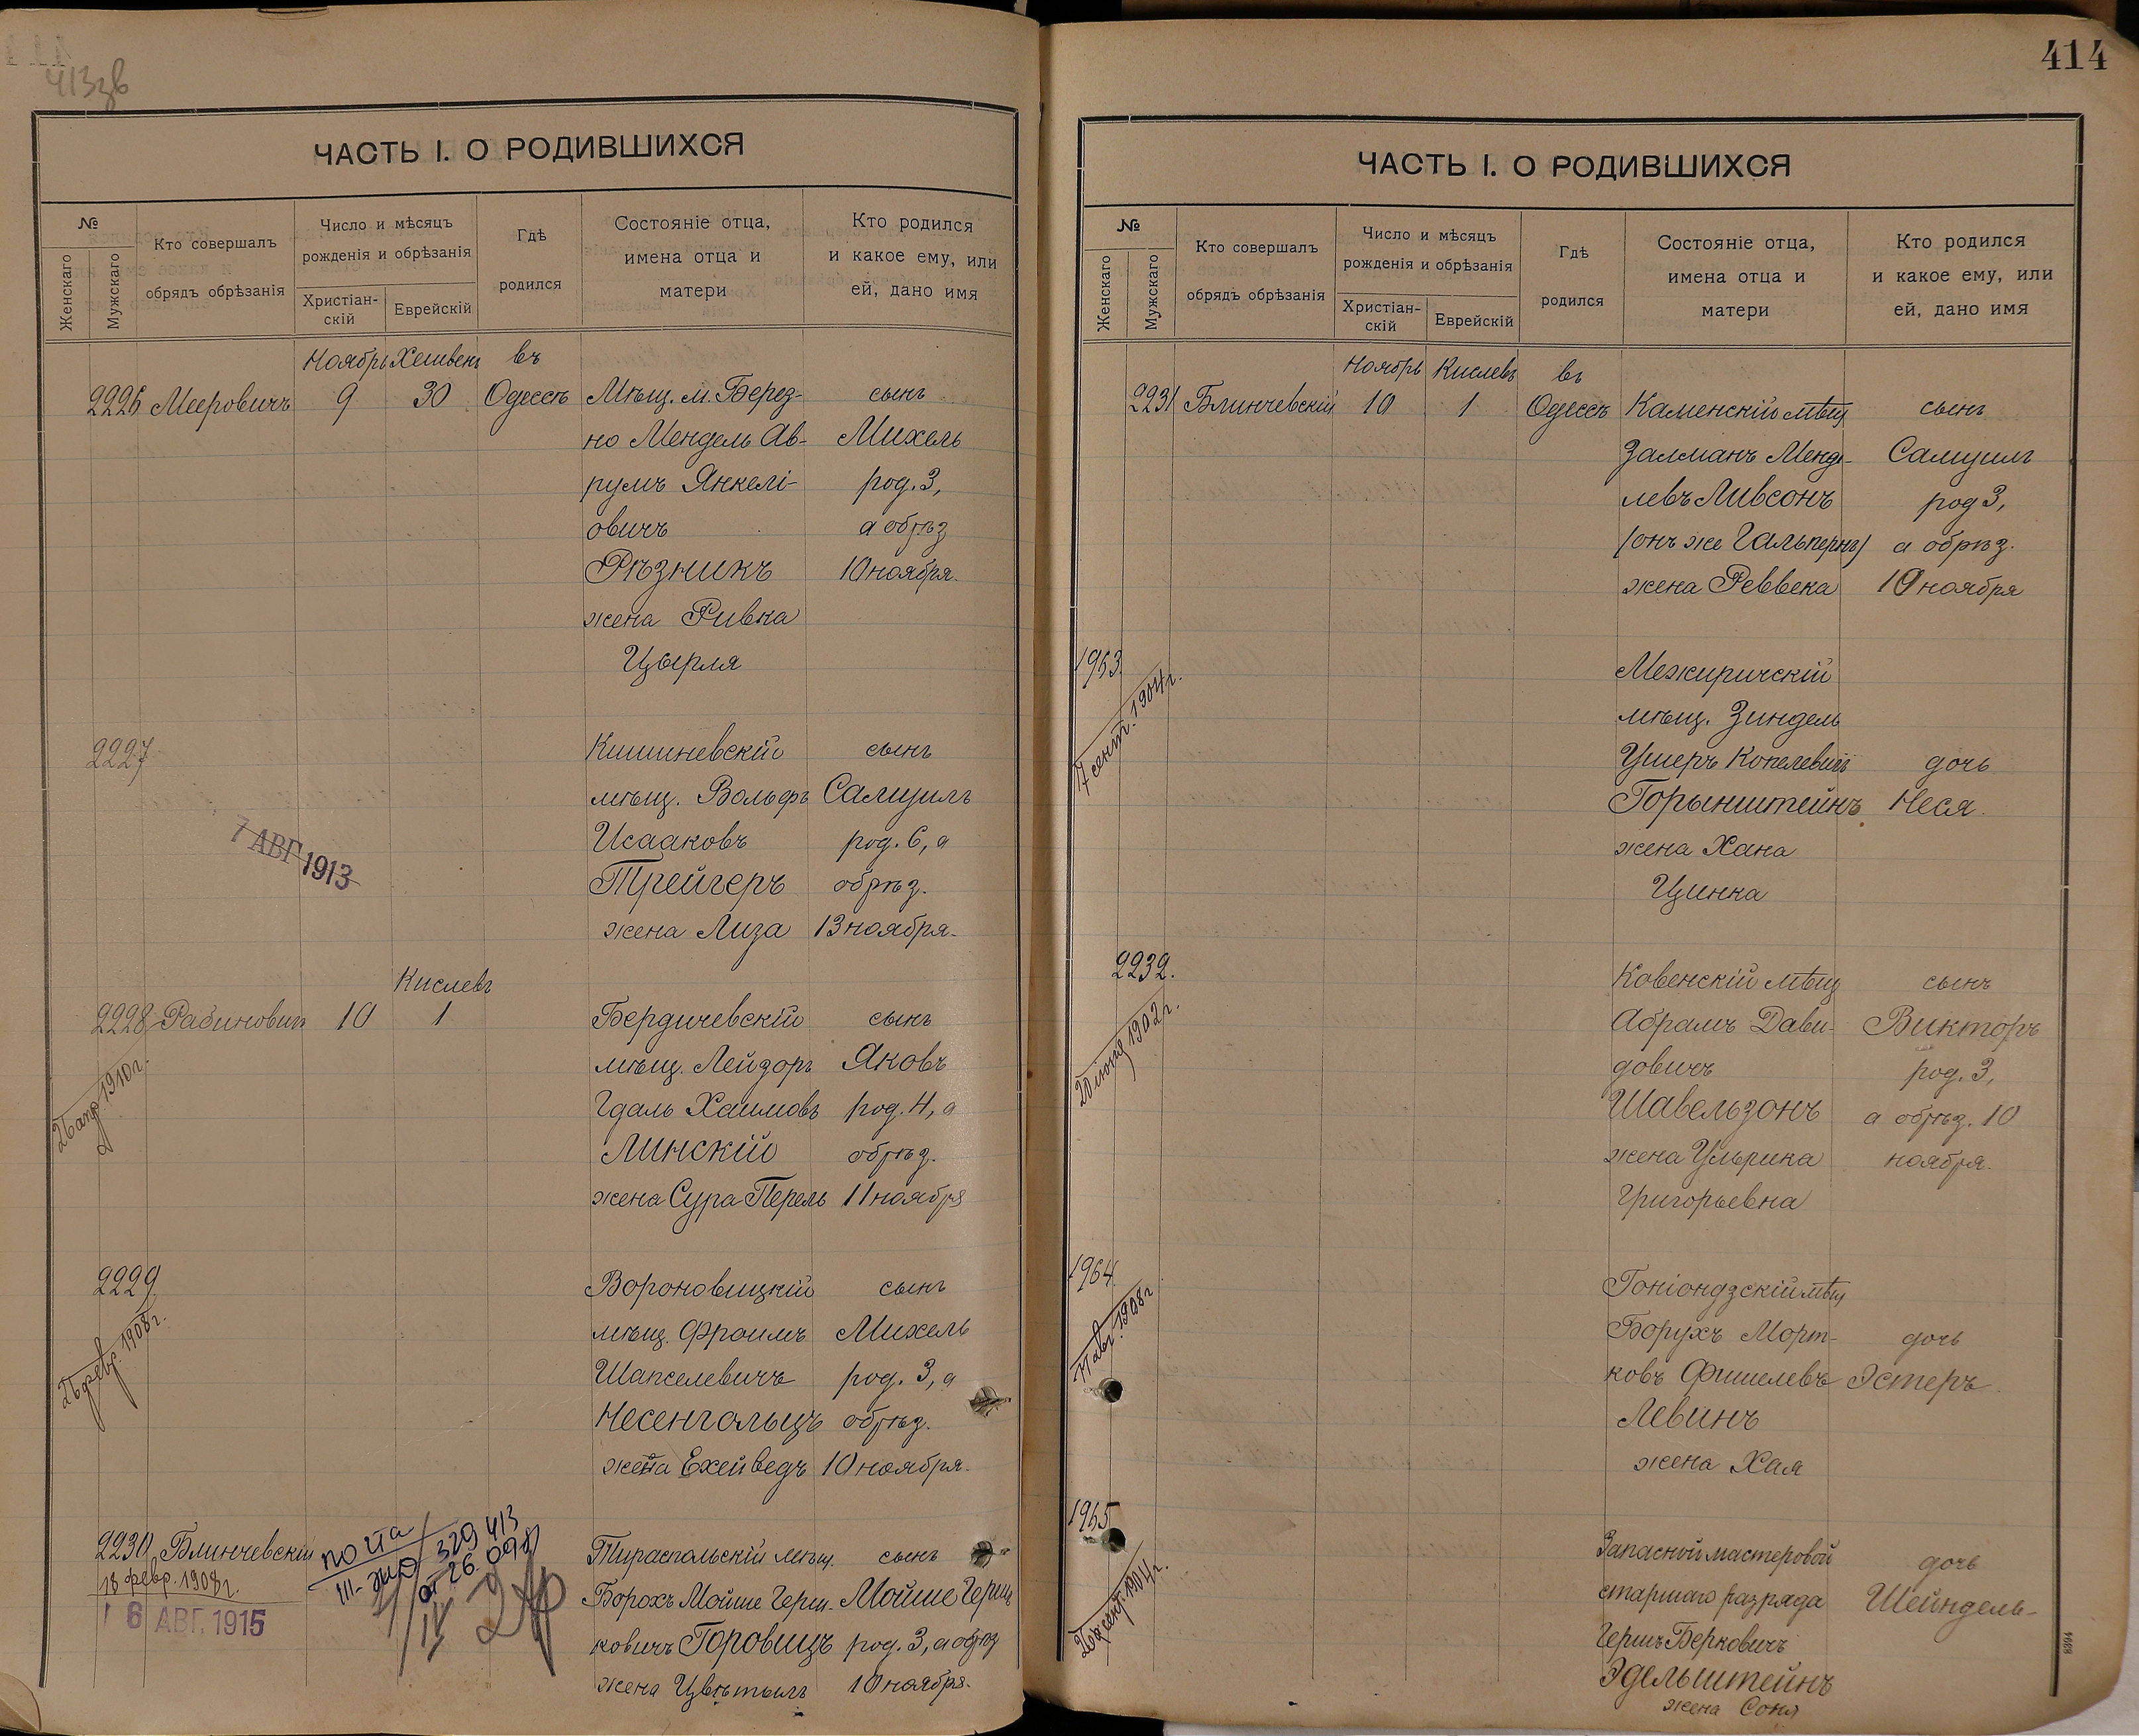 413зв
ЧАСТЬ I. О РОДИВШИХСЯ
№
Женскаго
Мужскаго
Кто совершалъ
обрядъ обрѣзанія
Число и мѣсяцъ
рожденія и обрѣзанія
Христіан-
скій
Еврейскій
Гдѣ
родился
Состояніе отца,
имена отца и
матери
Кто родился
и какое ему, или
ей, дано имя
Ноябрь Хешвенъ въ
2226 Мееровичъ 9 30 Одессѣ Мѣщ. м. Берез- сынъ
но Мендель Ав- Михель
румъ Янкелі- род. 3,
овичъ а обрѣз
Рѣзникъ 10 ноября.
жена Ривка
Цырля
2227 Кишиневскій сынъ
мѣщ. Вольфъ Самуилъ
Исааковъ род. 6, а
7 АВГ 1913
Трейгеръ обрѣз.
жена Лиза 13 ноября.
Кислевъ
2228 Рабиновичъ 10 1 Бердичевскій сынъ
мѣщ. Лейзоръ Яковъ
26 апр 1910 г.
Гдаль Хаимовъ род. 4, а
Линскій обрѣз.
жена Сура Перель 11 ноября
2229 Вороновицкій сынъ
мѣщ. Фроимъ Михель
26 февр. 1908 г.
Шапселевичъ род. 3, а
Несенгольцъ обрѣз.
жена Ехейведъ 10 ноября.
2230 Блинчевскій Тираспольскій мѣщ. сынъ
18 февр. 1908 г.
почта 329 413
от 26.
6 АВГ. 1915
Борохъ Мойше Герш- Мойше Герш
ковичъ Горовицъ род. 3, а обрѣз
жена Цвѣтылъ 10 ноября.
414
ЧАСТЬ I. О РОДИВШИХСЯ
№
Женскаго
Мужскаго
Кто совершалъ
обрядъ обрѣзанія
Число и мѣсяцъ
рожденія и обрѣзанія
Христіан-
скій
Еврейскій
Гдѣ
родился
Состояніе отца,
имена отца и
матери
Кто родился
и какое ему, или
ей, дано имя
Ноябрь Кислевъ въ
2231 Блинчевскій 10 1 Одессѣ Каменскій мѣщ сынъ
Залманъ Менде- Самуилъ
левъ Ливсонъ род 3,
(онъ же Гальпернъ) а обрѣз.
жена Реввека 10 ноября
1963 Межиричскій
17 сент. 1904 г.
мѣщ. Зиндель
Ушеръ Копелевичъ дочь
Горынштейнъ Неся
жена Хана
Цинка
2232. Ковенскій мѣщ сынъ
20 іюня 1902 г.
Абрамъ Дави- Викторъ
довичъ род. 3,
Шавельзонъ а обрѣз. 10
жена Ульрика ноября.
Григорьевна
1964 Гоніондзскій мѣщ
авг. 1908 г
Борухъ Морт- дочь
ковъ Фишелевъ Эстеръ
Левинъ
жена Хая
1965 Запасной мастеровой дочь
старшаго разряда Шейндель-
сент. 1904 г.
Гершъ Берковичъ
Эдельштейнъ
жена Соня